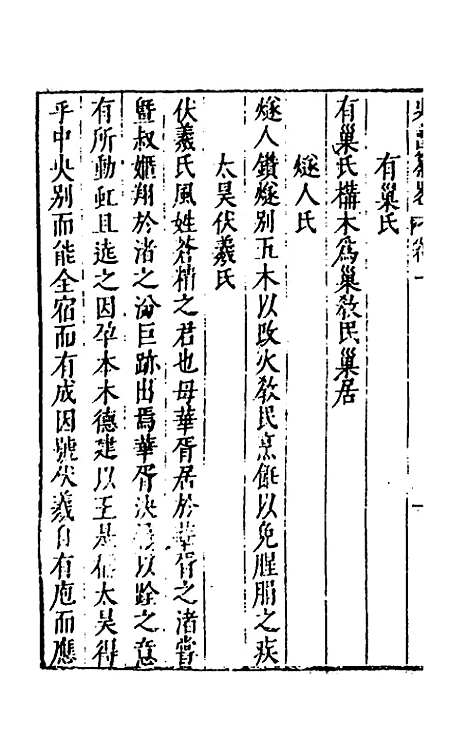 有巢氏
有巢氏構木為巢敎民巢居
燧人氏
燧人鑽燧别五木以改火敎民烹飪以免腥膻之疾
太昊伏羲氏
伏羲氏風姓蒼精之君也母華胥居於華胥之渚嘗
暨叔嫟翔於渚之汾巨跡出焉華胥決履以跧之意
有所動虹且遶之因孕本木德建以王是偁太昊得
乎中央别而能全宿而有成因號伏羲自有庖而應